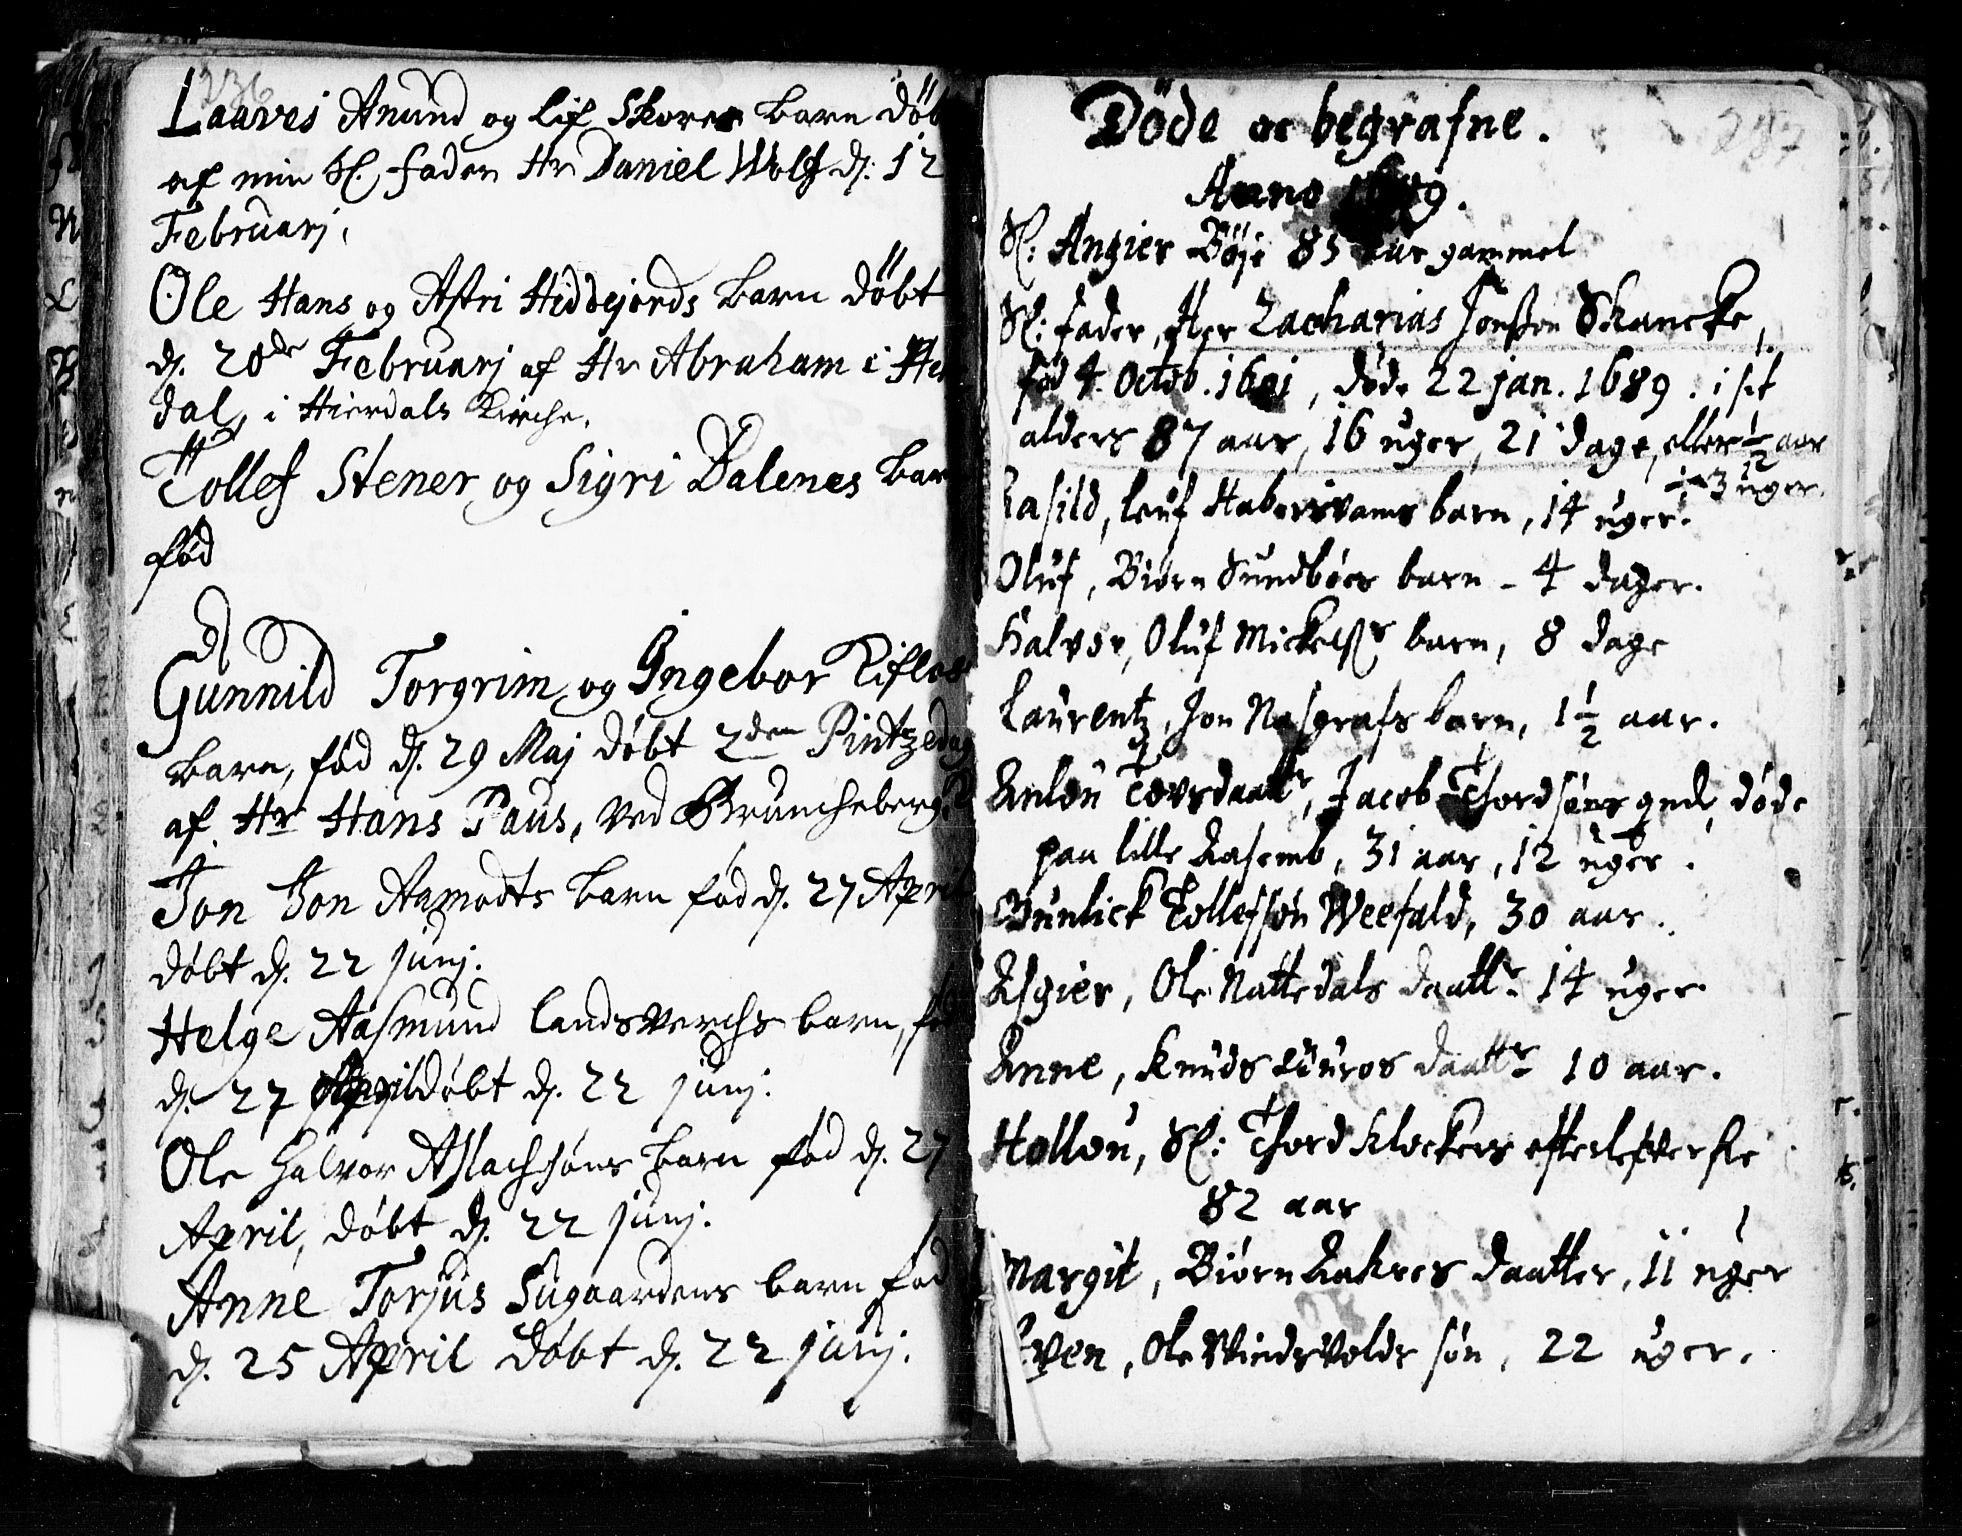 236
Laaves Anund og Lif Skores barn döb
af min Sl. fader Hr Daniel Wolf dj: 12
Februarj,
Ole Hans og Astri Hiddejords barn döbt
dj. 20de Februarj af Hr Abraham i
dal, i Hierdals Kirche.
Tollef Stener og Sigri Dalenes bar
fød
Gunnild Torgrim og Ingebor Riflos
barn, fød dj. 29 Maj døbt 2den Pintzedag
af Hr Hans Paus, ved Bruncheberg
Jon Jon Aamodts barn fød dj. 27 April
døbt dj. 22 junj.
Helge Aasmund Landsverchs barn, fø
dj. 27 April døbt dj. 22 junj.
Ole Halvor Aslachsøns barn fød dj. 27
April, døbt dj. 22 junj.
Anne Torjus Sugaardens barn fød
dj. 25 April døbt dj. 22 junj.
287
Döde oc begrafne.
Anno 9.
Sl: Angier Böje 85 aar gammel
Sl: fader, Her Zacharias Jonsson Skancke,
fød 4. Octob. 1601, døde 22 jan. 1689. i sit
alders 87 aar, 16 uger, 21 dage, eller 1/12 aar
÷ 3 uger.
Aasild, Leuf barn, 14 uger.
Oluf, Biørn Sundbøes barn - 4 dager.
Halvor, Oluf Mickelss barn, 8 dage
Laurentz, Jon Nasgrafs barn, 1 1/2 aar.
Anlou Tovsdaattr, Jacob Thordsøns qnd, døde
paa lille Aasemb, 31 aar, 12 uger.
Gunlick Tollefssøn Weefald, 30 aar.
Asgier, Ole Nattedals daattr 14 uger.
Anne, Knuds daattr 10 aar.
Hollou, Sl: Thord Klockers
82 aar
Margit, Biørn Aakres daatter, 11 uger
Even, Ole Vindsvolds søn, 22 uger.